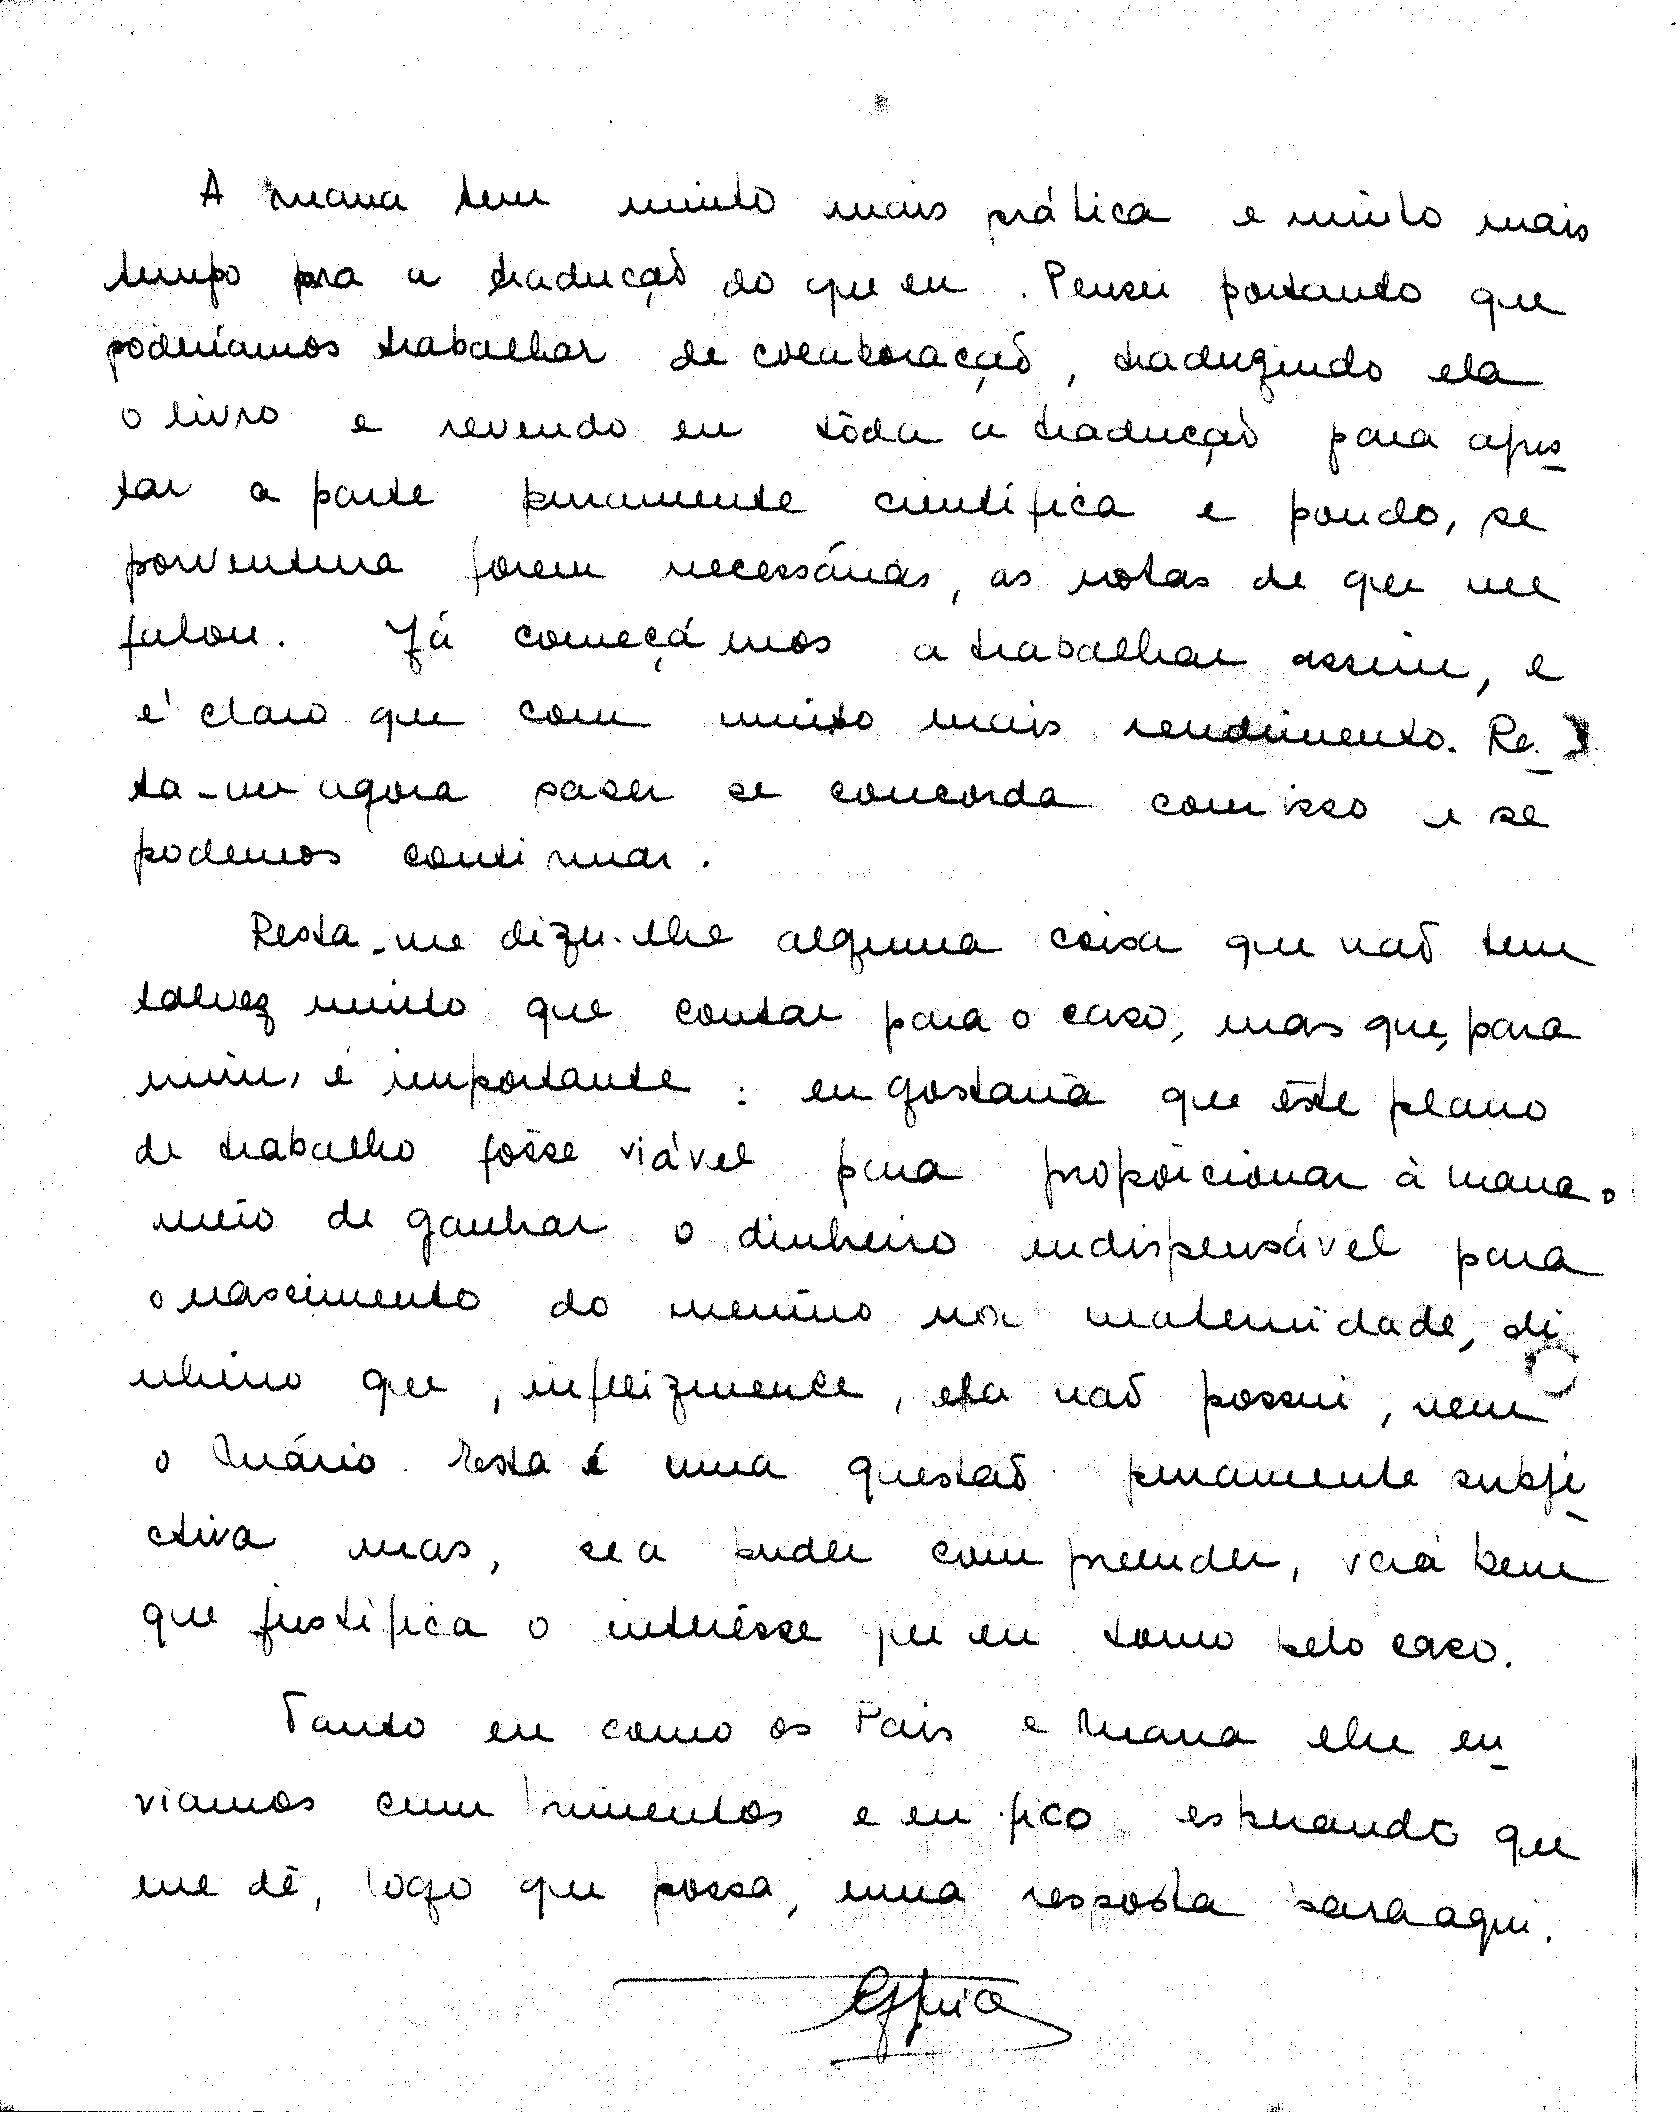 A Mana tem muito mais prática e muito mais
tempo pra a tradução do que eu. Pensei portanto que
poderíamos trabalhar de colaboração, traduzindo ela
o livro e revendo eu tôda a tradução para apus-
tar a parte puramente científica e pondo, se
porventura forem necessárias, as notas de que me
falou. Já começámos a trabalhar assim, e
é claro que com muito mais rendimento. Res-
ta-me agora saber se concorda com isso e se
podemos continuar.
Resta-me dizer-lhe alguma coisa que não tem
talvez muito que contar para o caso, mas que, para
mim, é importante: eu gostaria que êste plano
de trabalho fôsse viável para proporcionar à Mana o
meio de ganhar o dinheiro indispensável para
o nascimento do menino na maternidade, di-
nheiro que, infelizmente, ela não possui, nem
o Mário. Esta é uma questão puramente subje-
ctiva mas, se a puder compreender, verá bem
que justifica o interêsse que eu tomo pelo caso.
Tanto eu como os Pais e Mana lhe en-
viamos cumprimentos e eu fico esperando que
me dê, logo que possa, uma resposta para aqui.